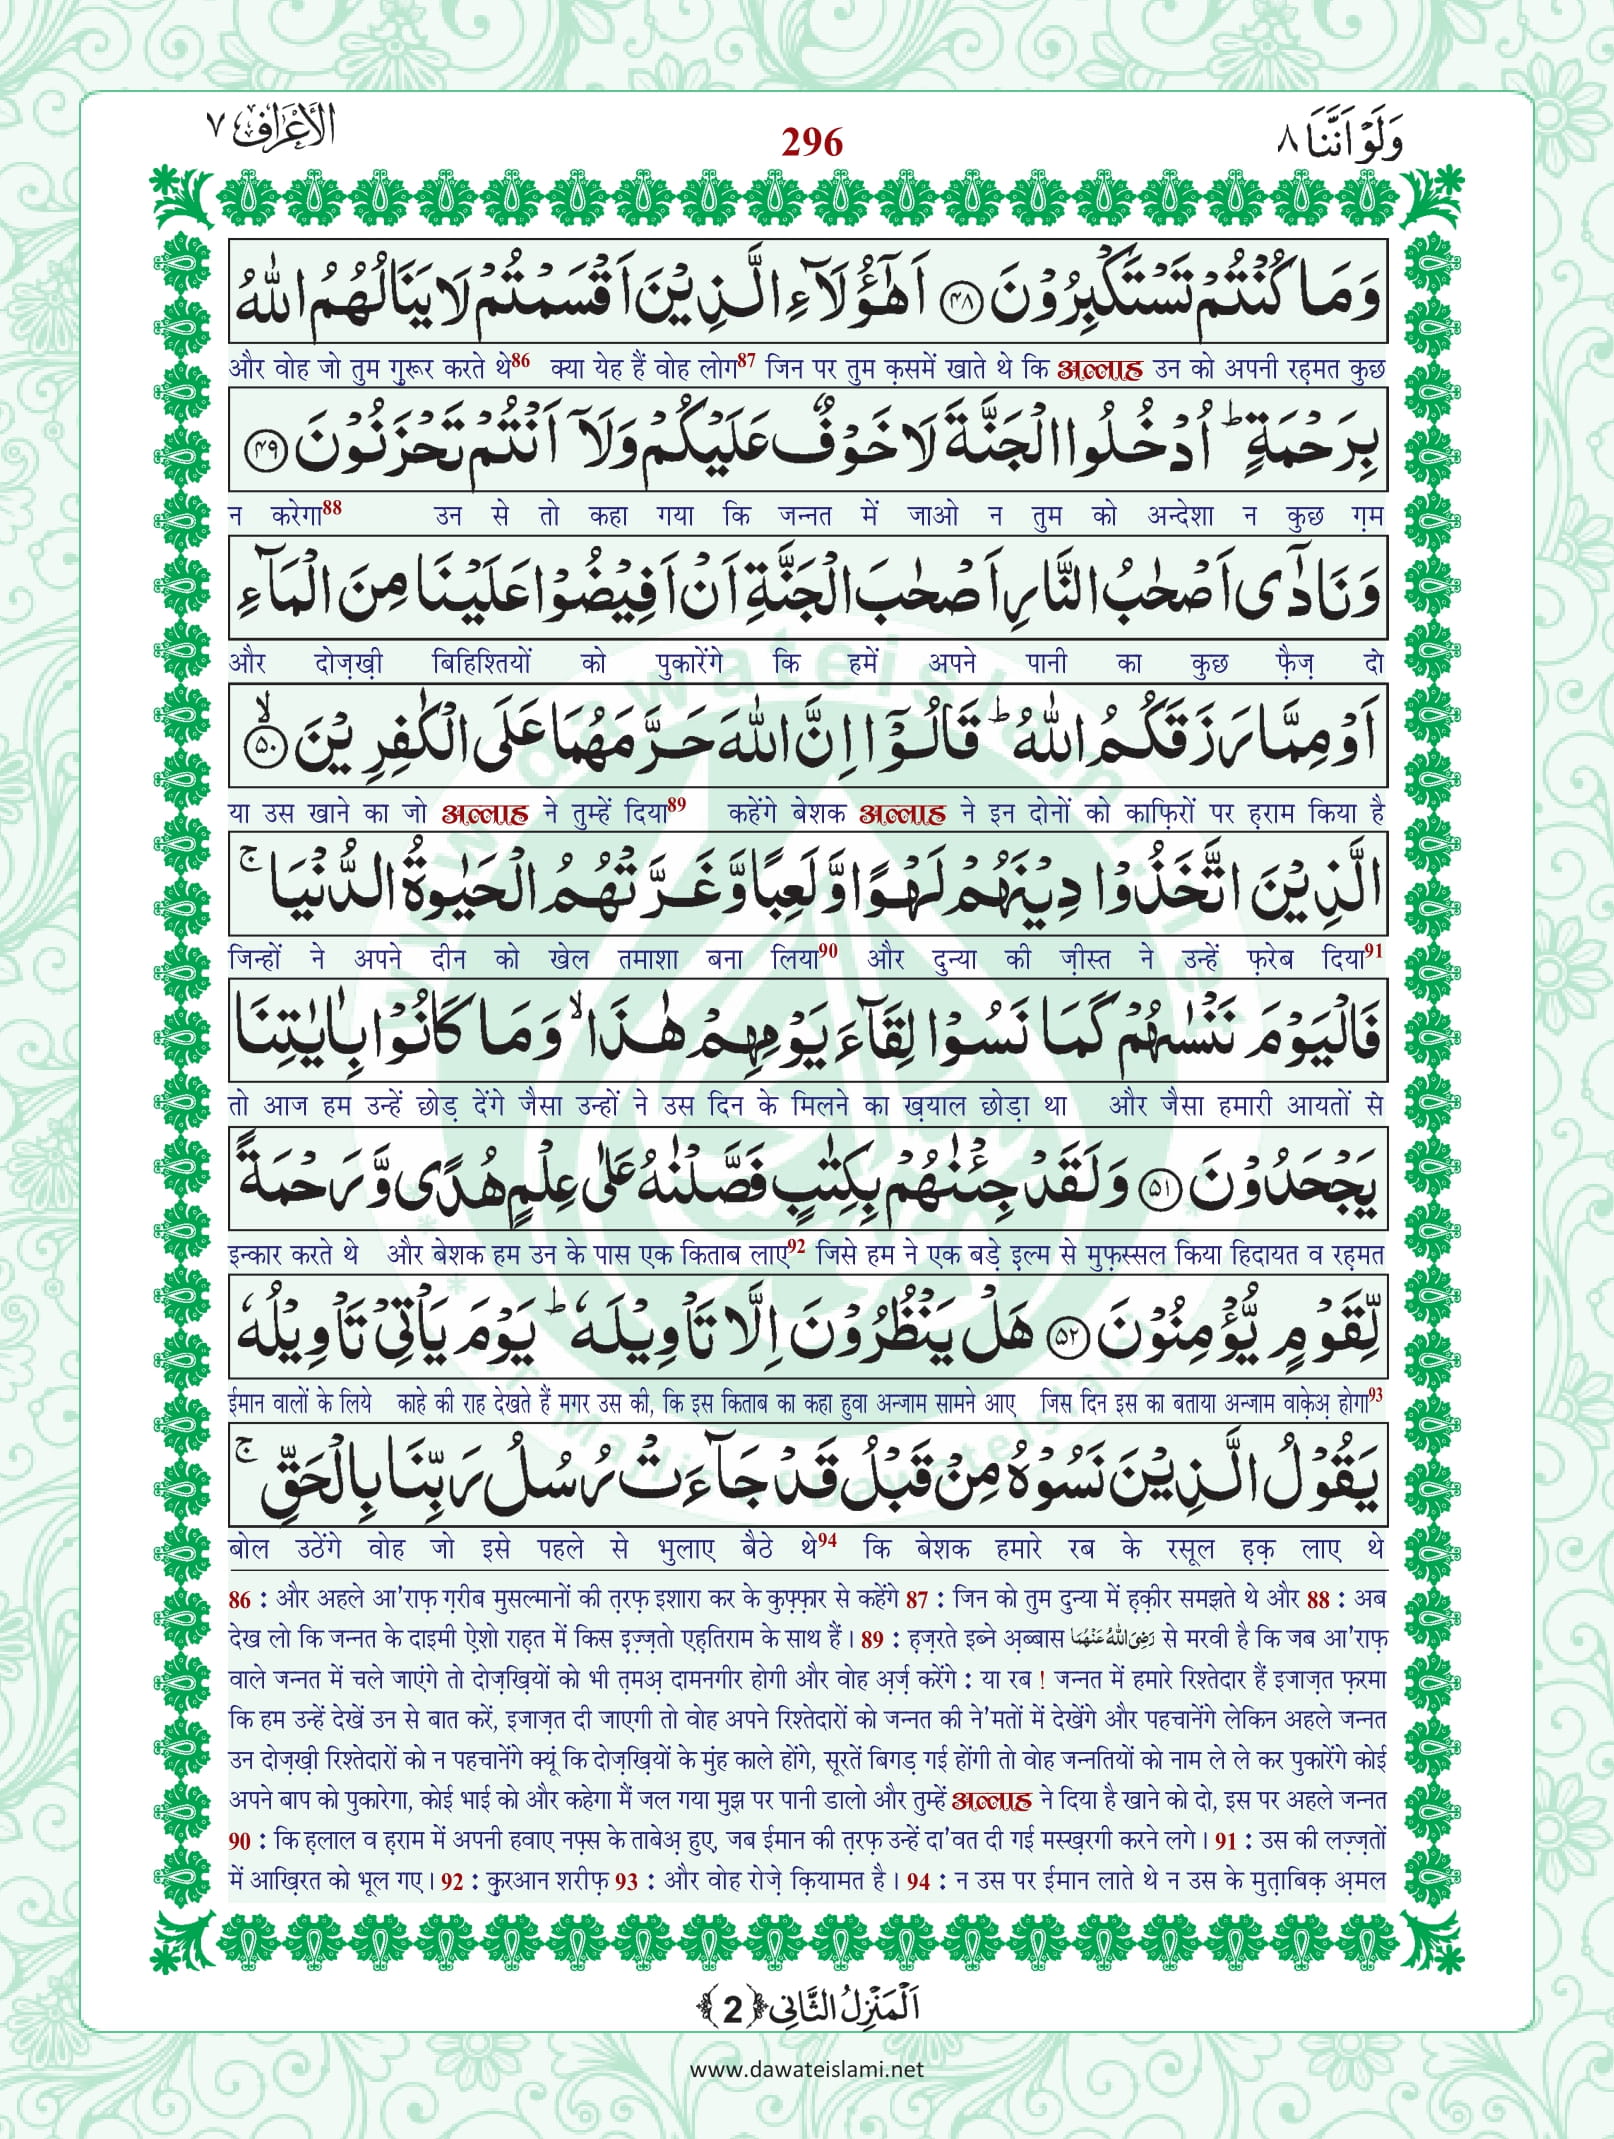 وَلَوْ اَنَّنَا ٨
296
الْاَعْرَاف ٧
وَمَا كُنْتُمْ تَسْتَكْبِرُوْنَ ﴿۴۸﴾ اَهٰۤؤُلَآءِ الَّذِیْنَ اَقْسَمْتُمْ لَا یَنَالُهُمُ اللّٰهُ
और वोह जो तुम ग़ुरूर करते थे86 क्या येह हैं वोह लोग87 जिन पर तुम क़समें खाते थे कि अल्लाह उन को अपनी रह़मत कुछ
بِرَحْمَةٍ ؕ اُدْخُلُوا الْجَنَّةَ لَا خَوْفٌ عَلَیْكُمْ وَلَاۤ اَنْتُمْ تَحْزَنُوْنَ ﴿۴۹﴾
न करेगा88 उन से तो कहा गया कि जन्नत में जाओ न तुम को अन्देशा न कुछ ग़म
وَنَادٰۤى اَصْحٰبُ النَّارِ اَصْحٰبَ الْجَنَّةِ اَنْ اَفِیْضُوْا عَلَیْنَا مِنَ الْمَآءِ
और दोज़ख़ी बिहिश्तियों को पुकारेंगे कि हमें अपने पानी का कुछ फ़ैज़ दो
اَوْ مِمَّا رَزَقَكُمُ اللّٰهُ ؕ قَالُوْۤا اِنَّ اللّٰهَ حَرَّمَهُمَا عَلَى الْكٰفِرِیْنَ ﴿ۙ۵۰﴾
या उस खाने का जो अल्लाह ने तुम्हें दिया89 कहेंगे बेशक अल्लाह ने इन दोनों को काफ़िरों पर ह़राम किया है
الَّذِیْنَ اتَّخَذُوْا دِیْنَهُمْ لَهْوًا وَّلَعِبًا وَّغَرَّتْهُمُ الْحَیٰوةُ الدُّنْیَا ۚ
जिन्हों ने अपने दीन को खेल तमाशा बना लिया90 और दुन्या की ज़ीस्त ने उन्हें फ़रेब दिया91
فَالْیَوْمَ نَنْسٰىهُمْ كَمَا نَسُوْا لِقَآءَ یَوْمِهِمْ هٰذَا ۙ وَمَا كَانُوْا بِاٰیٰتِنَا
तो आज हम उन्हें छोड़ देंगे जैसा उन्हों ने उस दिन के मिलने का ख़याल छोड़ा था और जैसा हमारी आयतों से
یَجْحَدُوْنَ ﴿۵۱﴾ وَلَقَدْ جِئْنٰهُمْ بِكِتٰبٍ فَصَّلْنٰهُ عَلٰى عِلْمٍ هُدًى وَّرَحْمَةً
इन्कार करते थे और बेशक हम उन के पास एक किताब लाए92 जिसे हम ने एक बड़े इल्म से मुफ़स्सल किया हिदायत व रह़मत
لِّقَوْمٍ یُّؤْمِنُوْنَ ﴿۵۲﴾ هَلْ یَنْظُرُوْنَ اِلَّا تَاْوِیْلَهٗ ؕ یَوْمَ یَاْتِیْ تَاْوِیْلُهٗ
ईमान वालों के लिये काहे की राह देखते हैं मगर उस की, कि इस किताब का कहा हुवा अन्जाम सामने आए जिस दिन इस का बताया अन्जाम वाक़ेअ़ होगा93
یَقُوْلُ الَّذِیْنَ نَسُوْهُ مِنْ قَبْلُ قَدْ جَآءَتْ رُسُلُ رَبِّنَا بِالْحَقِّ ۚ
बोल उठेंगे वोह जो इसे पहले से भुलाए बैठे थे94 कि बेशक हमारे रब के रसूल ह़क़ लाए थे
86 : और अहले आ'राफ़ ग़रीब मुसल्मानों की त़रफ़ इशारा कर के कुफ़्फ़ार से कहेंगे 87 : जिन को तुम दुन्या में ह़क़ीर समझते थे और 88 : अब
देख लो कि जन्नत के दाइमी ऐ़शो राह़त में किस इ़ज़्ज़तो एह़तिराम के साथ हैं। 89 : ह़ज़रते इब्ने अ़ब्बास رَضِیَ اللهُ عَنْهُمَا से मरवी है कि जब आ'राफ़
वाले जन्नत में चले जाएंगे तो दोज़ख़ियों को भी त़मअ़ दामनगीर होगी और वोह अ़र्ज़ करेंगे : या रब ! जन्नत में हमारे रिश्तेदार हैं इजाज़त फ़रमा
कि हम उन्हें देखें उन से बात करें, इजाज़त दी जाएगी तो वोह अपने रिश्तेदारों को जन्नत की ने'मतों में देखेंगे और पहचानेंगे लेकिन अहले जन्नत
उन दोज़ख़ी रिश्तेदारों को न पहचानेंगे क्यूं कि दोज़ख़ियों के मुंह काले होंगे, सूरतें बिगड़ गई होंगी तो वोह जन्नतियों को नाम ले ले कर पुकारेंगे कोई
अपने बाप को पुकारेगा, कोई भाई को और कहेगा मैं जल गया मुझ पर पानी डालो और तुम्हें अल्लाह ने दिया है खाने को दो, इस पर अहले जन्नत
90 : कि ह़लाल व ह़राम में अपनी हवाए नफ़्स के ताबेअ़ हुए, जब ईमान की त़रफ़ उन्हें दा'वत दी गई मस्ख़रगी करने लगे। 91 : उस की लज़्ज़तों
में आख़िरत को भूल गए। 92 : क़ुरआन शरीफ़ 93 : और वोह रोज़े क़ियामत है। 94 : न उस पर ईमान लाते थे न उस के मुत़ाबिक़ अ़मल
اَلْمَنْزِلُ الثَّانِی ﴿2﴾
www.dawateislami.net